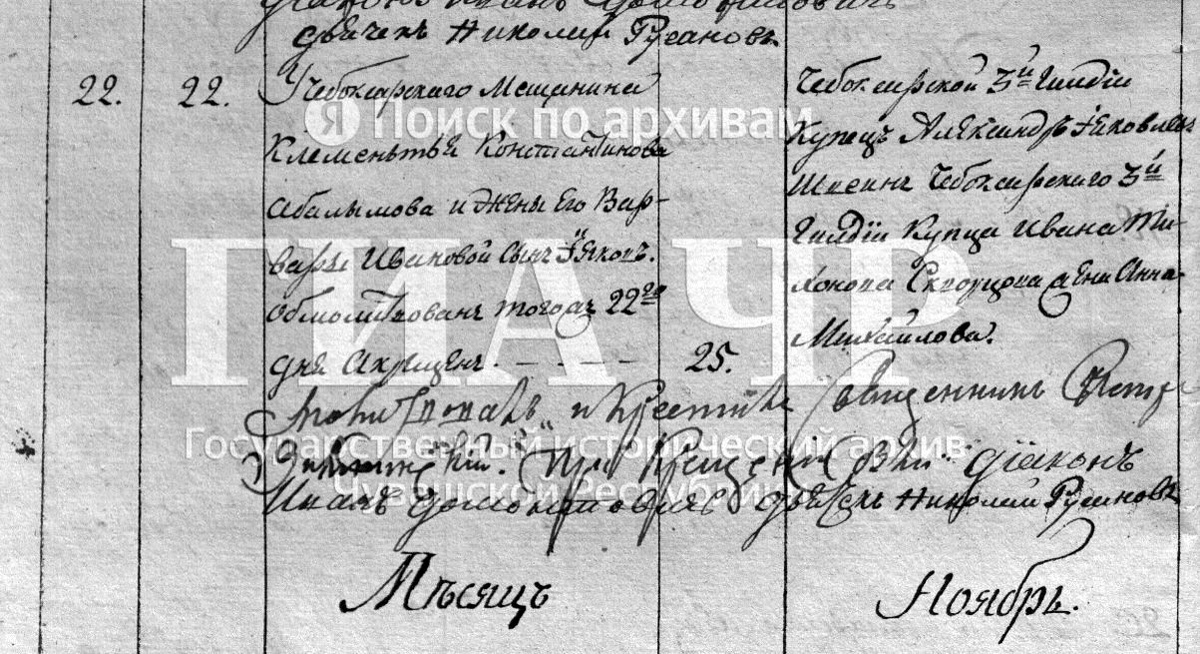 дьячекъ Николай Русановъ.
22. 22. Учебоксарскаго Мещанина
Клементья Константинова
Абалымова и жены Его Вар-
вары Ивановой Сынъ Iяковъ.
Обмолитвованъ тогожъ 22го
дня Акрещенъ - - - - 25.
Чебоксарской 3й Гилдiи
Купецъ Александръ Iяковлевъ
Шнеинъ Чебоксарскаго 3й
Гилдiи Купца Ивана Ти-
хонова Скворцова жена Анна
Михаилова.
Молитвовалъ и Крестилъ Священникъ Петръ
При Крещенiи были дiаконъ
Иванъ дьячекъ Николай Русановъ
Мѣсяцъ Ноябрь.
Я Поиск по архивам
ГИА ЧР
Государственный исторический архив
Чувашской Республики